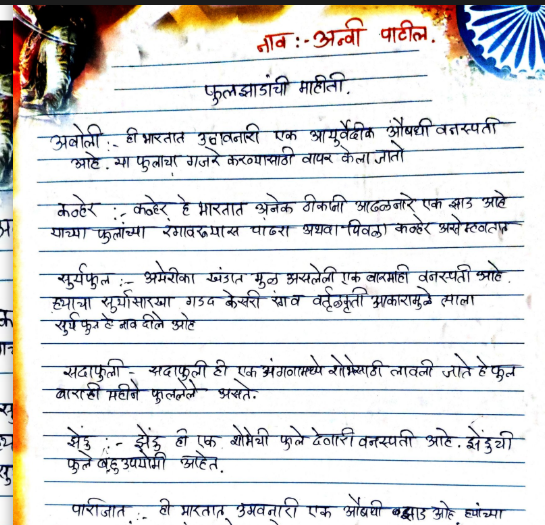 नाव :- अन्वी पाटील.
फुलझाडांची माहीती.
अबोली :- ही भारतात उगवनारी एक आयुर्वेदीक औषधी वनस्पती
आहे. या फुलांचा गजरे करण्यासाठी वापर केला जातो
कन्हेर :- कन्हेर हे भारतात अनेक ठीकानी आढळनारे एक झाड आहे
याच्या फुलांच्या रंगावरून्यास पांढरा अथवा पिवळा कन्हेर असे म्हणतात
सुर्यफुल :- अमेरीका खंडात मुळ असलेली एक बारमाही वनस्पती आहे.
ह्याचा सुर्यासारखा गडद केसरी रंगाव वर्तुळकृती आकारामुळे त्याला
सुर्य फुल हे नाव दीले आहे
सदाफुली - सदाफुली ही एक अंगनामध्ये शोभेसाठी लावली जाते हे फुल
बाराही महीने फुललेले असते.
झेंडु :- झेंडु ही एक शोभेची फुले देणारी वनस्पती आहे. झेंडुची
फुले बहुउपयोगी आहेत.
पारिजात :- ही भारतात उगवनारी एक औषधी झाड आहे ह्यांच्या